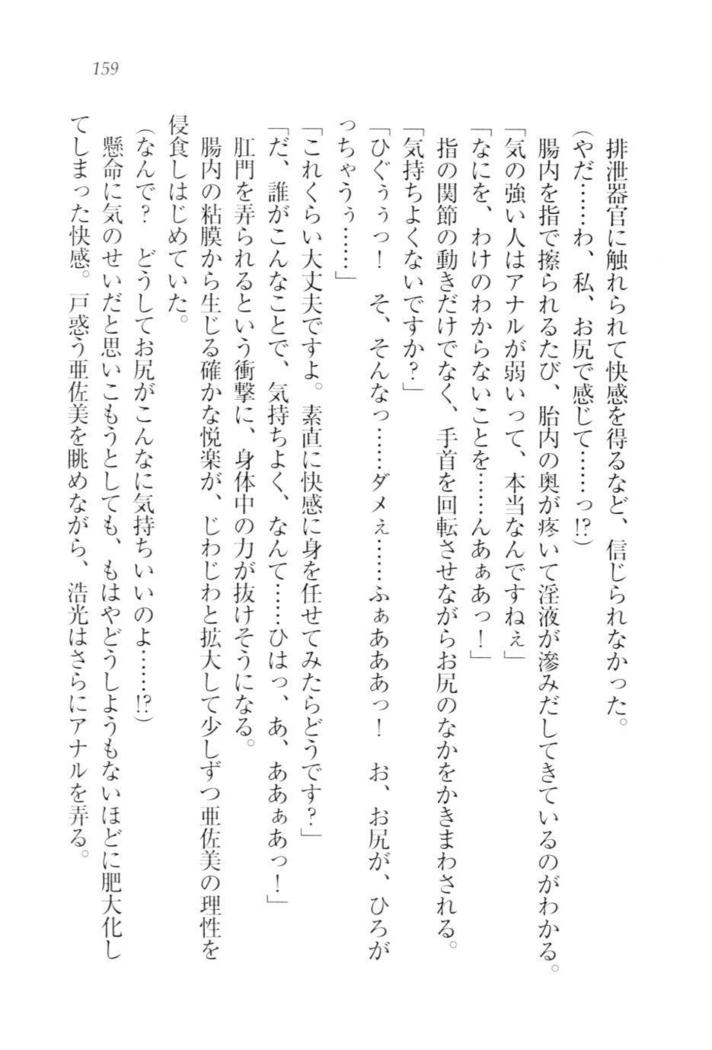 159
排泄器官に触れられて快感を得るなど、信じられなかった。
(やだ……わ、私、お尻で感じて……っ!?)
腸内を指で擦られるたび、胎内の奥が疼いて淫液が滲みだしてきているのがわかる。
「気の強い人はアナルが弱いって、本当なんですねぇ」
「なにを、わけのわからないことを……んあぁあっ！」
指の関節の動きだけでなく、手首を回転させながらお尻のなかをかきまわされる。
「気持ちよくないですか？」
「ひぐぅぅっ！　そ、そんなっ……ダメぇ……ふぁあああっ！　お、お尻が、ひろが
っちゃうぅ……」
「これくらい大丈夫ですよ。素直に快感に身を任せてみたらどうです？」
「だ、誰がこんなことで、気持ちよく、なんて……ひはっ、あ、ああぁあっ！」
肛門を弄られるという衝撃に、身体中の力が抜けそうになる。
腸内の粘膜から生じる確かな悦楽が、じわじわと拡大して少しずつ亜佐美の理性を
侵食しはじめていた。
(なんで？　どうしてお尻がこんなに気持ちいいのよ……!?)
懸命に気のせいだと思いこもうとしても、もはやどうしようもないほどに肥大化し
てしまった快感。戸惑う亜佐美を眺めながら、浩光はさらにアナルを弄る。